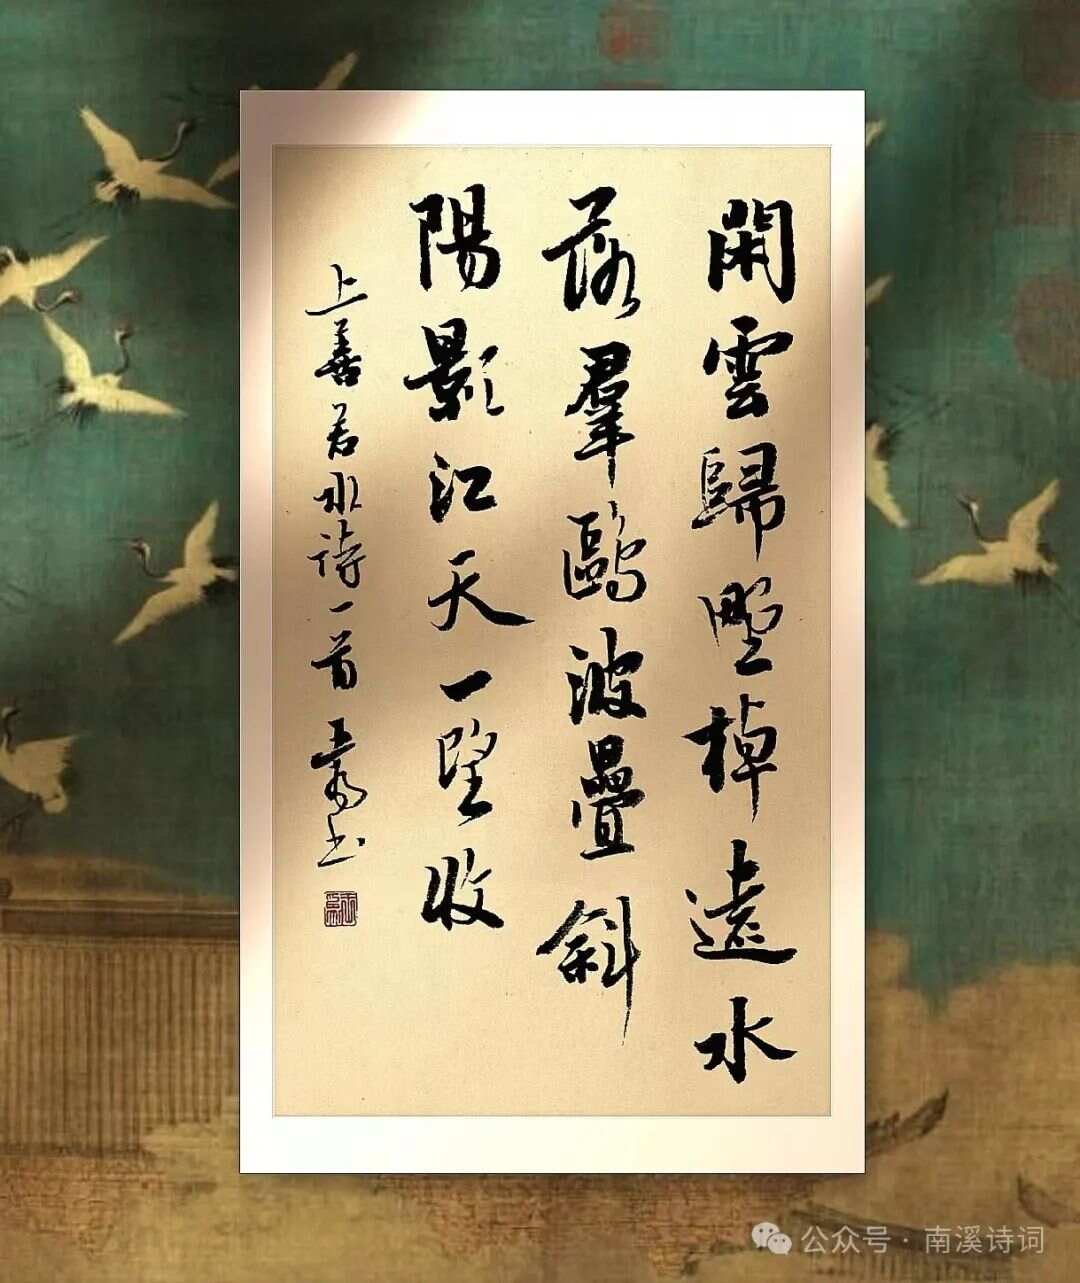 閑雲歸野棹遠水
落羣鷗波疊斜
陽影江天一望收
上善若水詩一首
公众号 · 南溪诗词